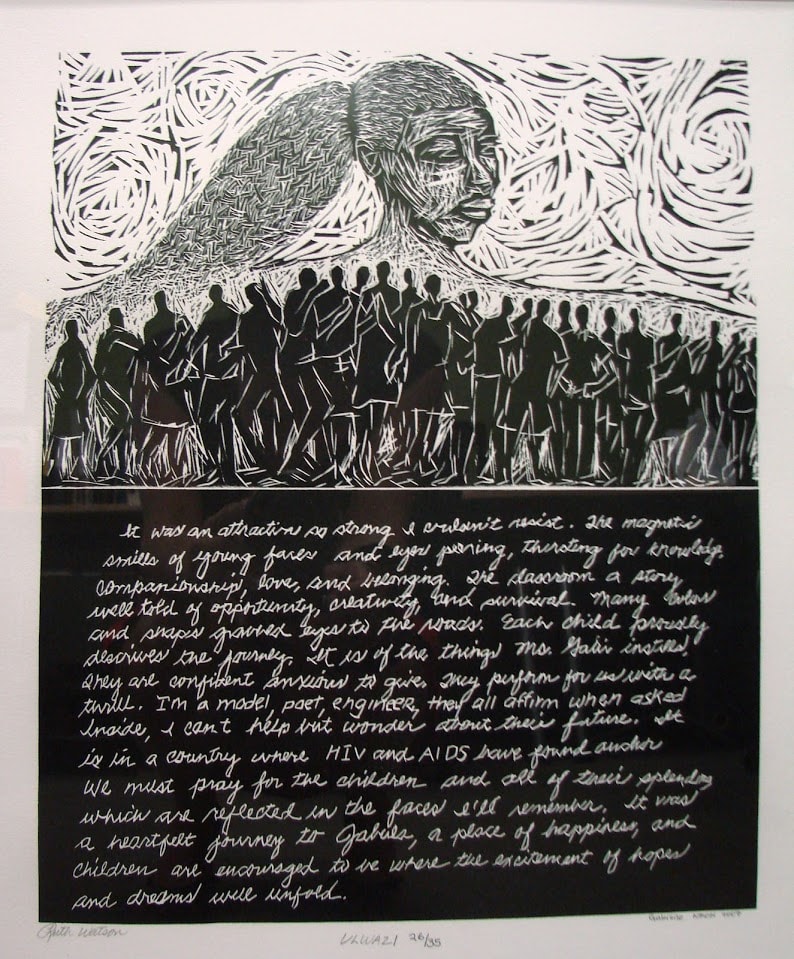 It was an attraction so strong I couldn't resist. The magnetic
smiles of young faces and eyes peering, thirsting for knowledge,
companionship, love, and belonging. The classroom a story
well told of opportunity, creativity, and survival. Many colors
and shapes eyes to the roads. Each child proudly
describes the journey. It is of the things Ms. instills.
They are confident anxious to give. They perform for us with a
thrill. I'm a model, poet, engineer, they all affirm when asked
Inside, I can't help but wonder about their future. It
is in a country where HIV and AIDS have found anchor
We must pray for the children and all of their splendor
which are reflected in the faces I'll remember. It was
a heartfelt journey to Jabula, a place of happiness, and
children are encouraged to be where the excitement of hopes
and dreams will unfold.
Ruth Watson
ULWAZI 26/35